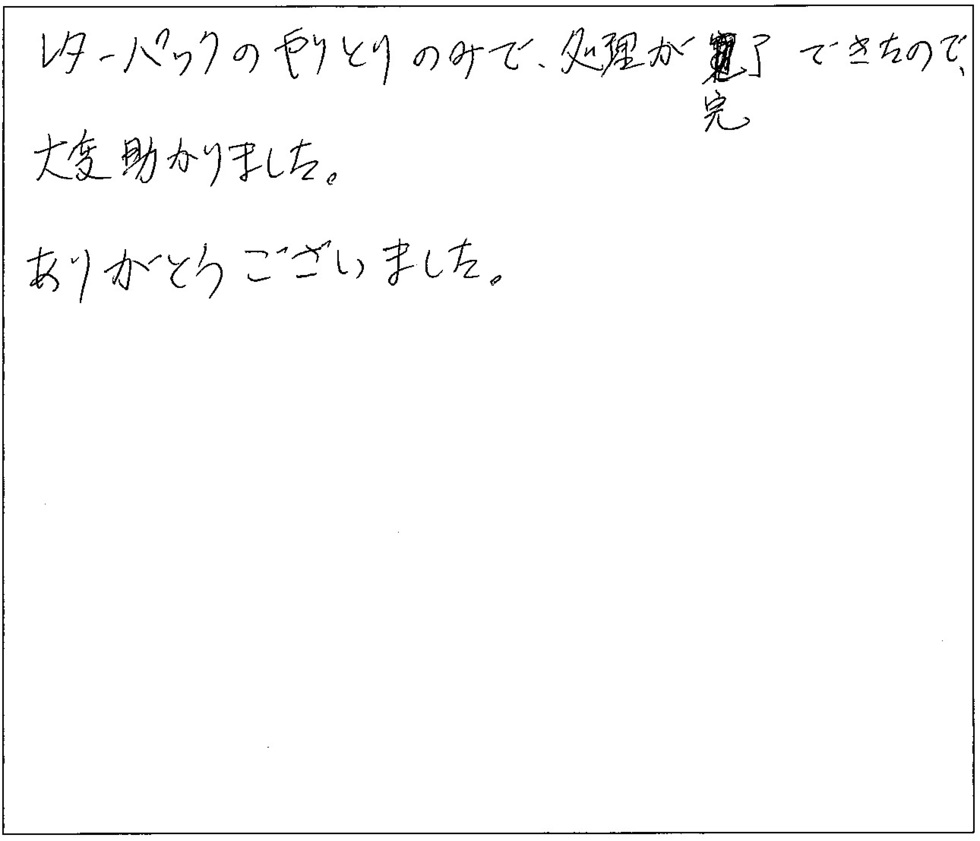 レターパックのやりとりのみで、処理が完了できたので、
大変助かりました。
ありがとうございました。